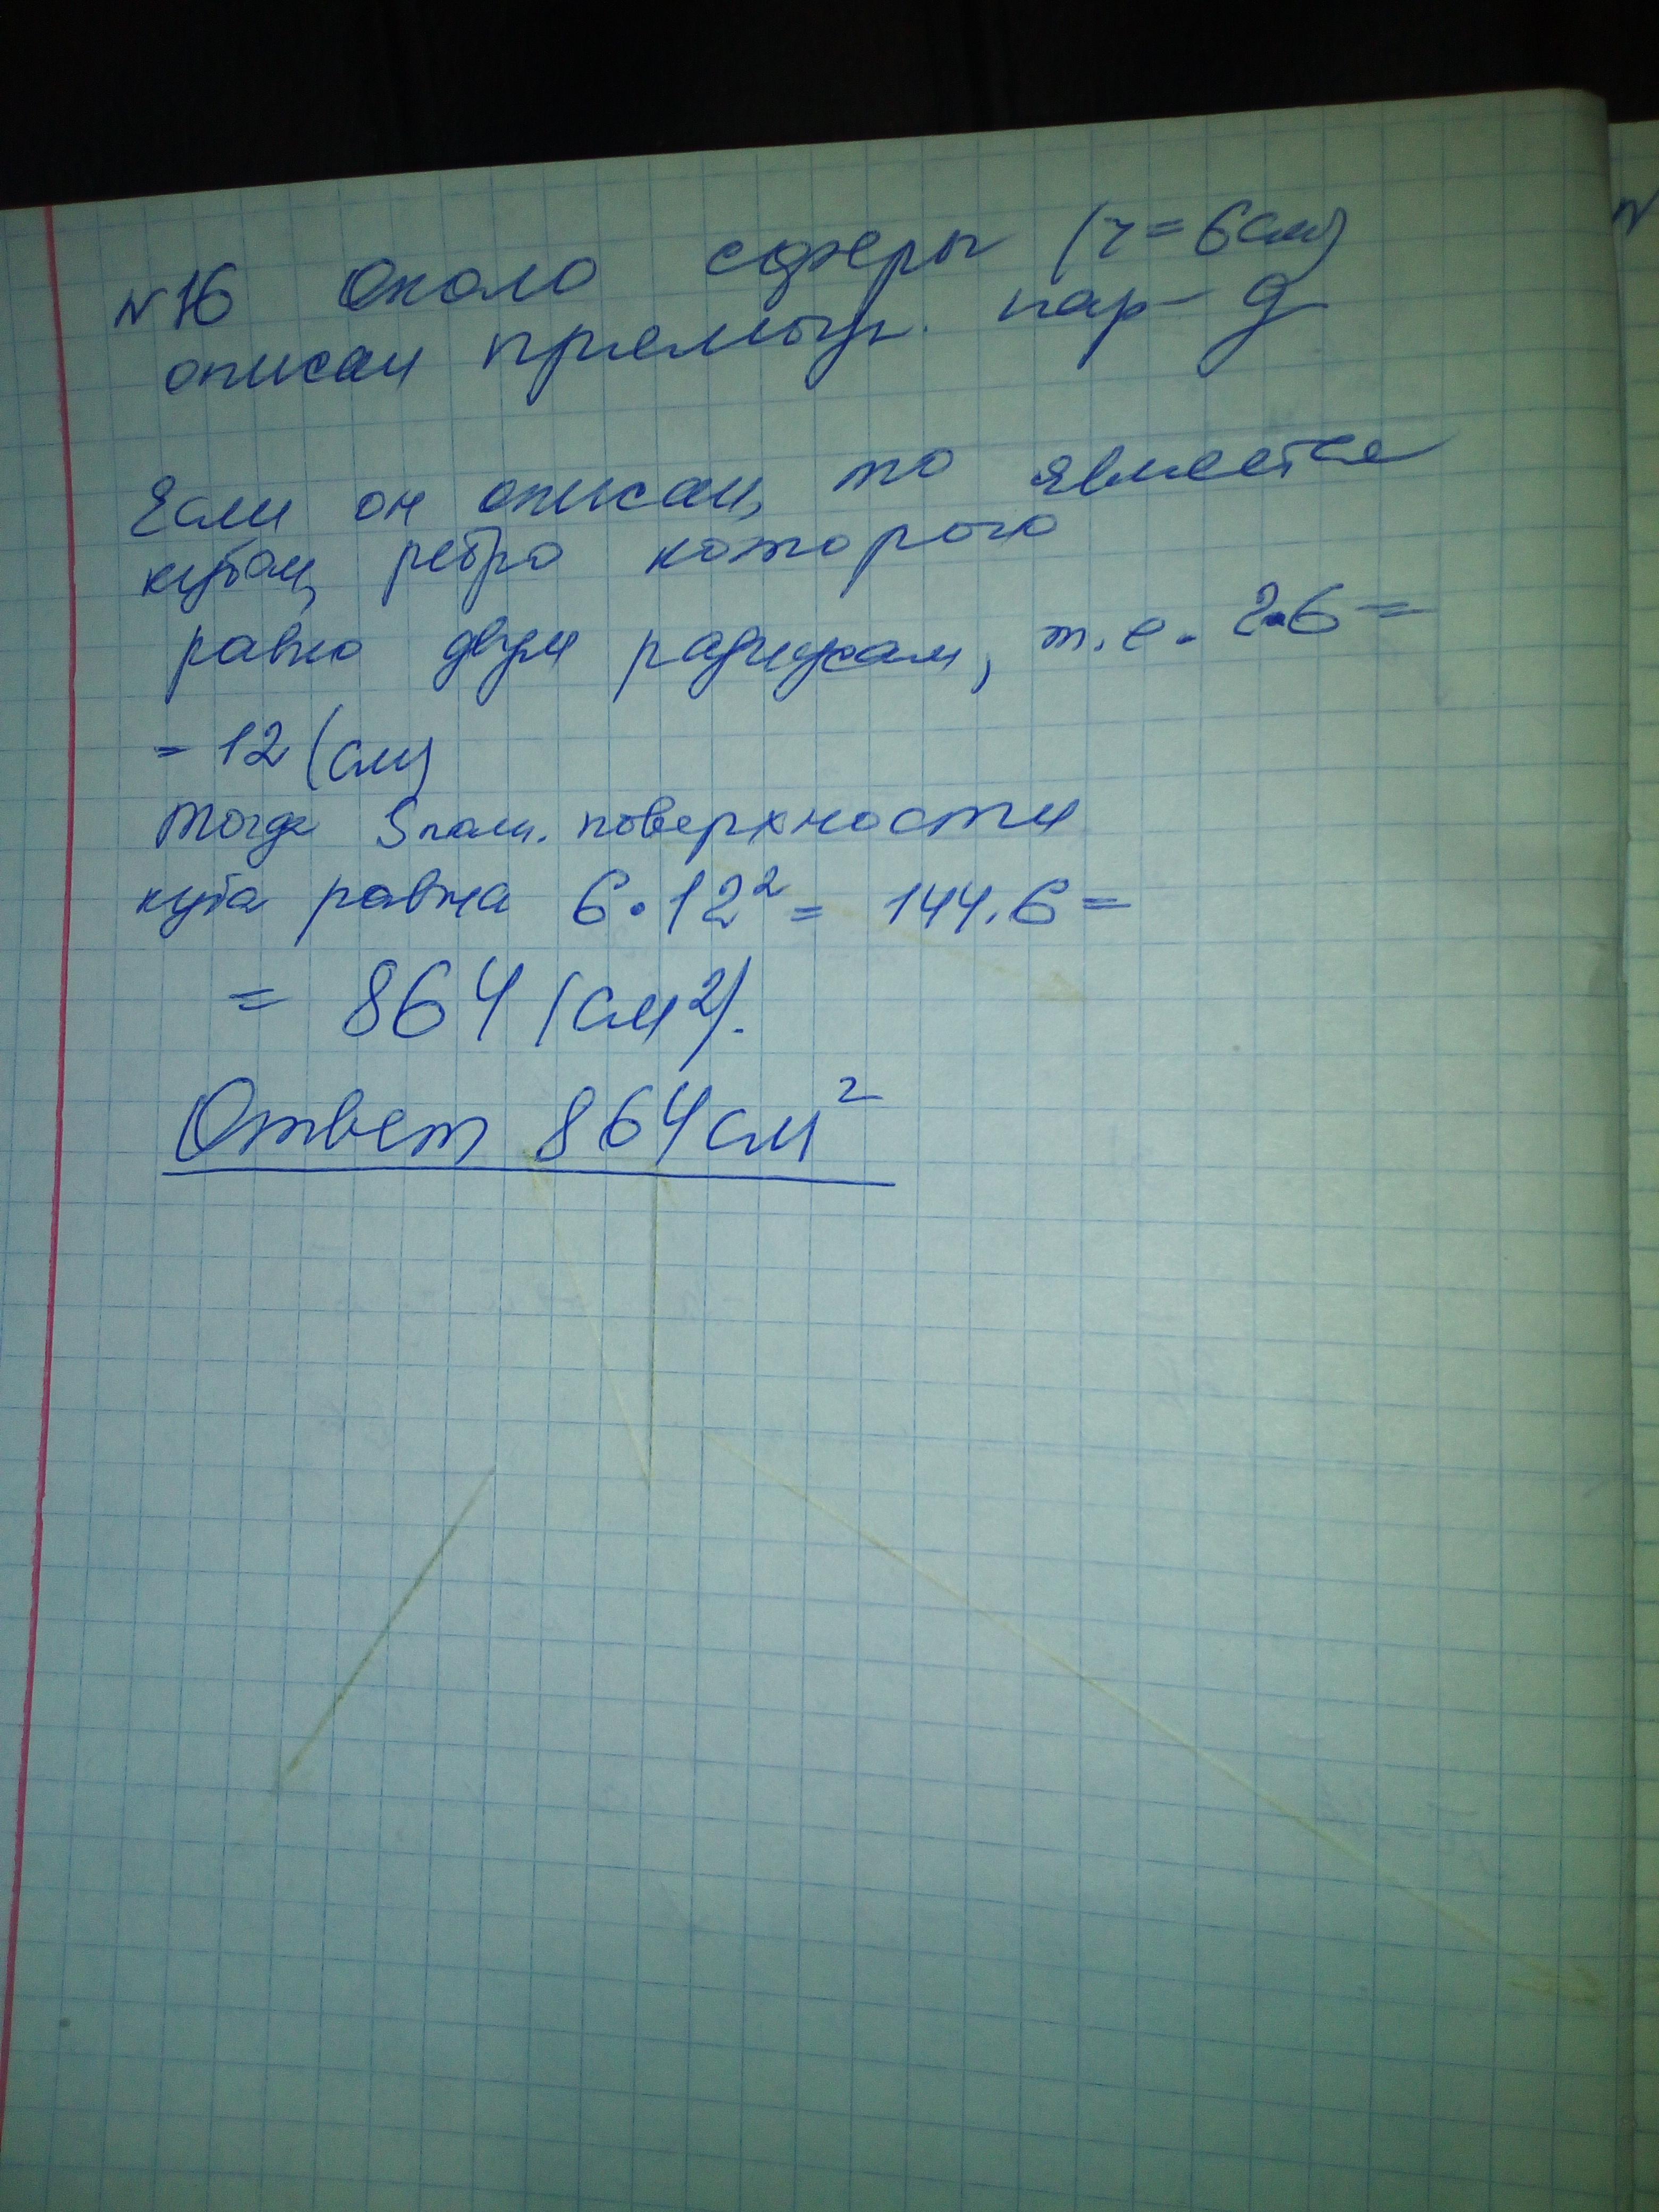 №16 Около сферы (r=6см)
описан прямоуг. пар-д
Если он описан, то является
кубом, ребро которого
равно двум радиусам, т.е. 2·6=
= 12 (см)
Тогда Sполн. поверхности
куба равна 6·12² = 144·6=
= 864 (см²).
Ответ 864см²
N